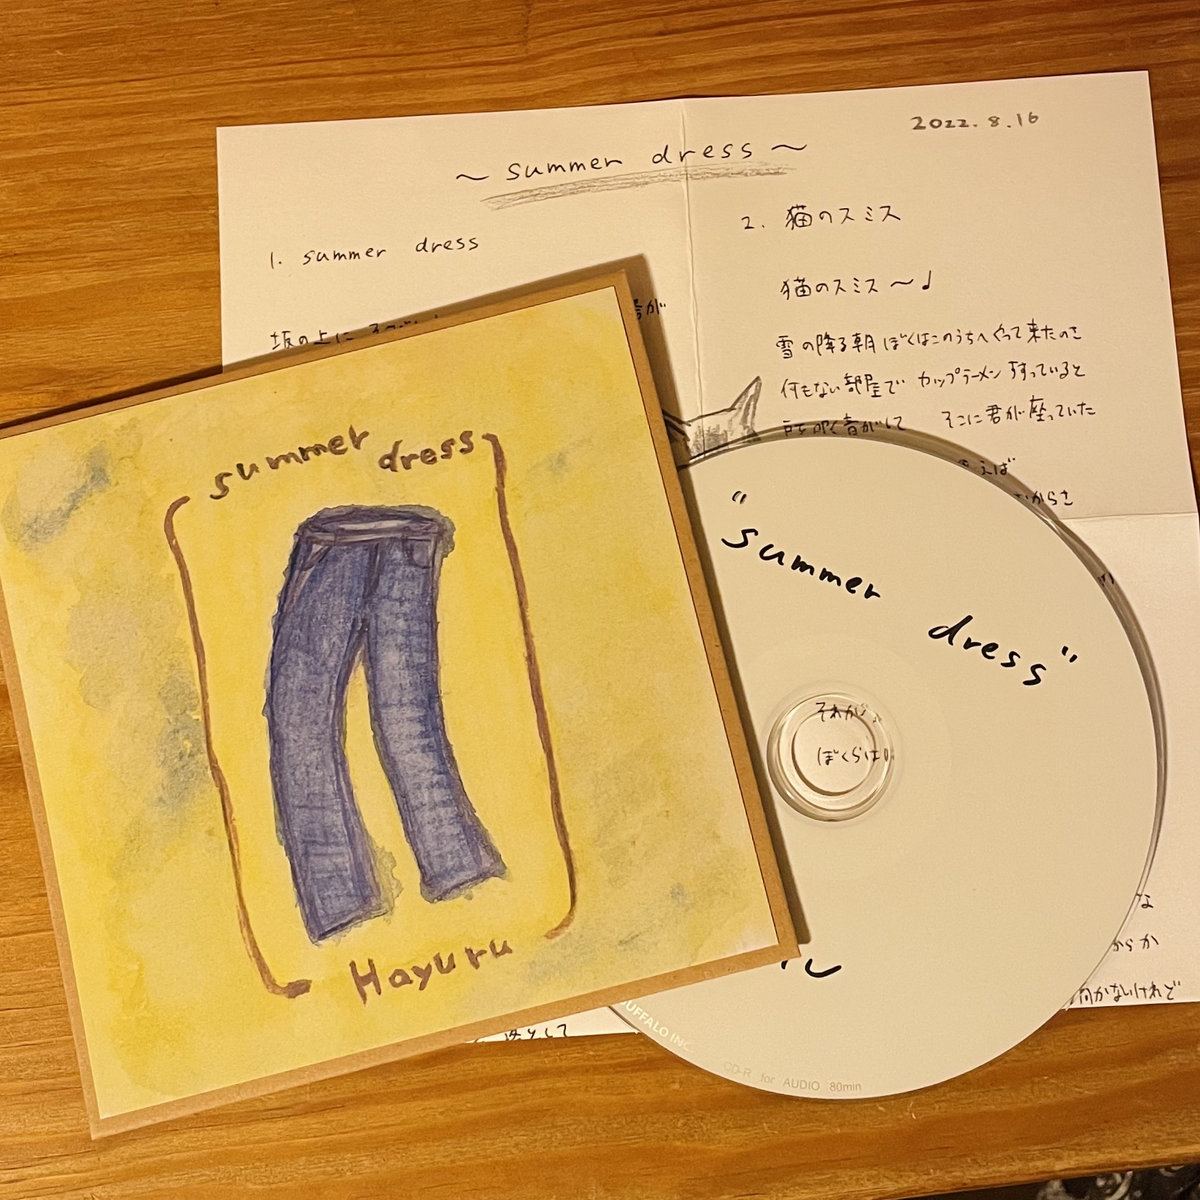 2022.8.16
〜 summer dress 〜
1. summer dress
坂の上に
音が
2. 猫のスミス
猫のスミス〜♩
雪の降る朝 ぼくはこのうちへやって来たのさ
何もない部屋で カップラーメンすすっていると
戸を叩く音がして そこに君が座っていた
えば
からさ
summer dress
Hayuru
"summer dress"
それが
ぼくらは
な
からか
向かないけれど
BUFFALO INC.
CD-R for AUDIO 80min